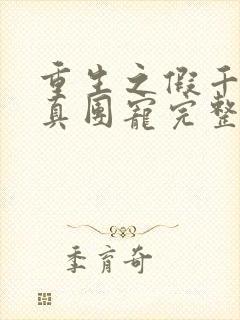 重生之假千
真团宠完整
季育奇